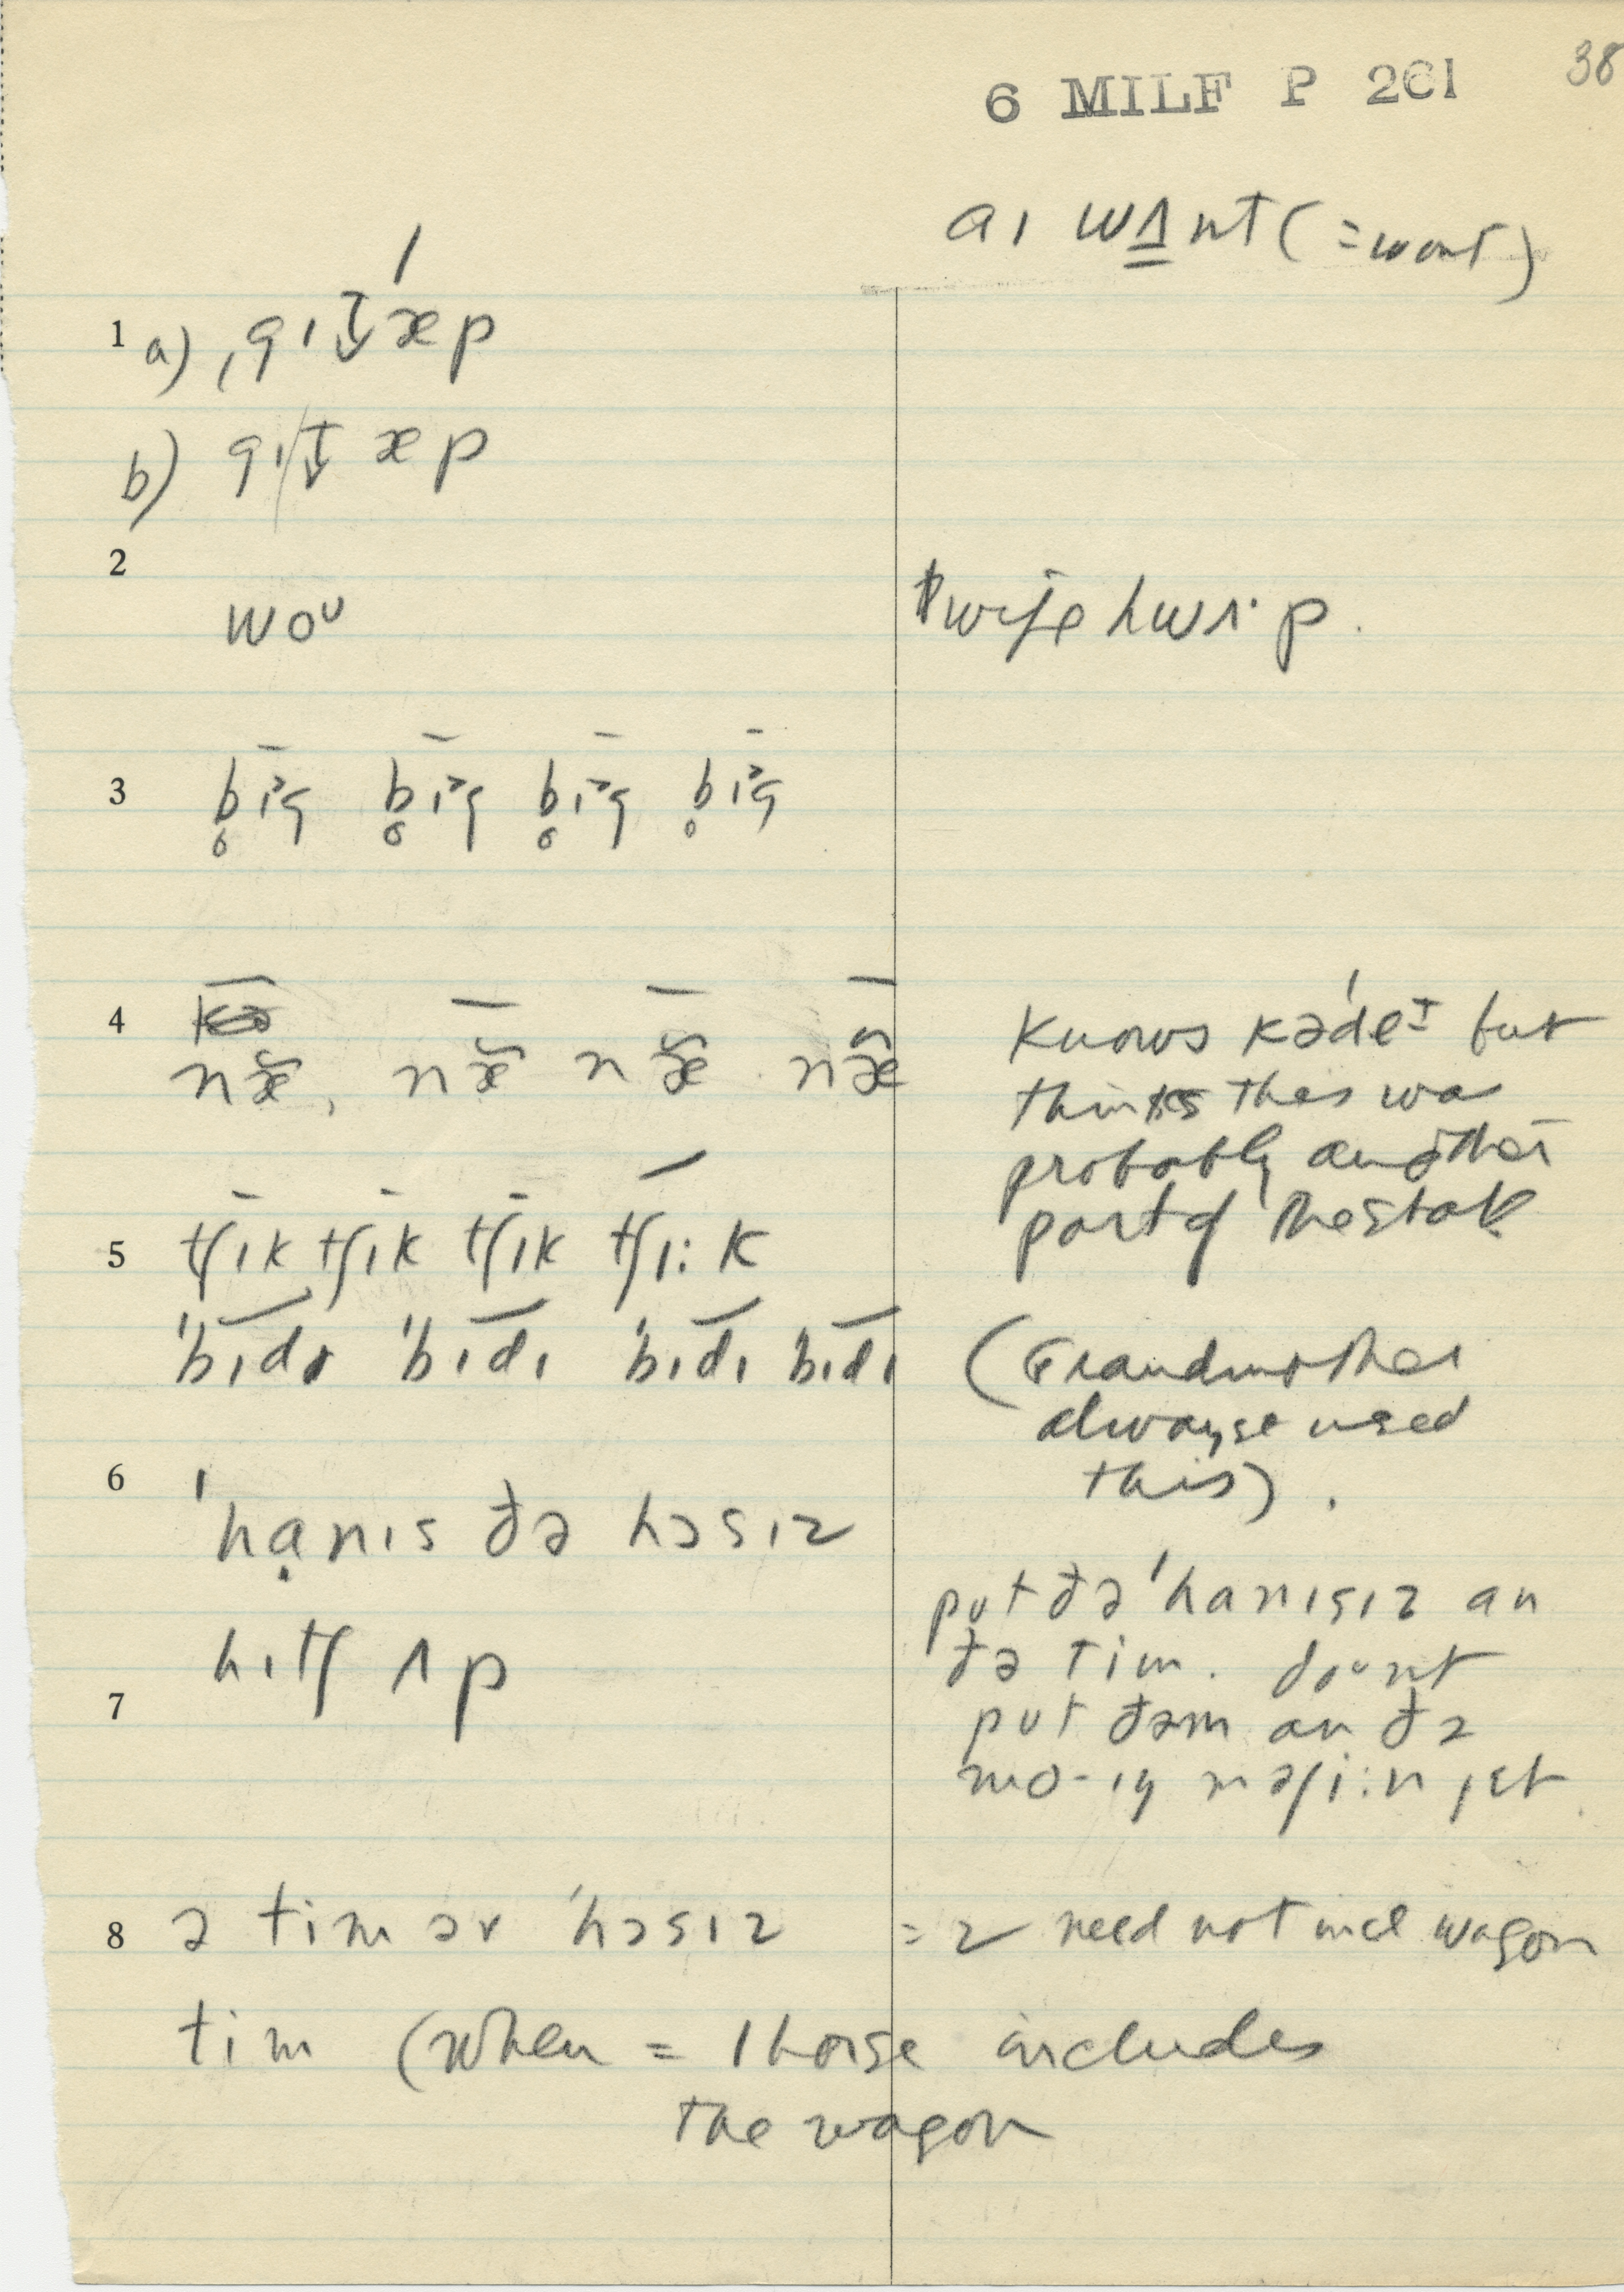 6 MILF P 261
38
aɪ wʌnt (=wont)
1 a) ˌgɪt̬ˈæp
b) gɪt̬ æp
2
woᵁ
wife hwʌˑp.
3 b̥ɪᵊg b̥ɪᵊg b̥ɪᵊg b̥ɪᵊg
4
næ̆, næ̆ næ̆ næ̑
Knows kə'deɪ but
thinks this was
probably another
part of the state
5 tʃɪk tʃɪk tʃɪk tʃɪ: k
'bɪdɪ 'bɪdɪ 'bɪdɪ bɪdɪ
(Grandmother
always used
this).
6 'hạnɪs ðə hɔsɪz
hɪtʃ ʌp
7
put ðə 'hanɪsɪz an
ðə tim. doᵘnt
put ðəm an ðə
mo-ɪŋ məʃi:n jɛt.
8 ə tim əv 'hɔsɪz = 2 need not incl wagon
tim (when = 1 horse includes
the wagon